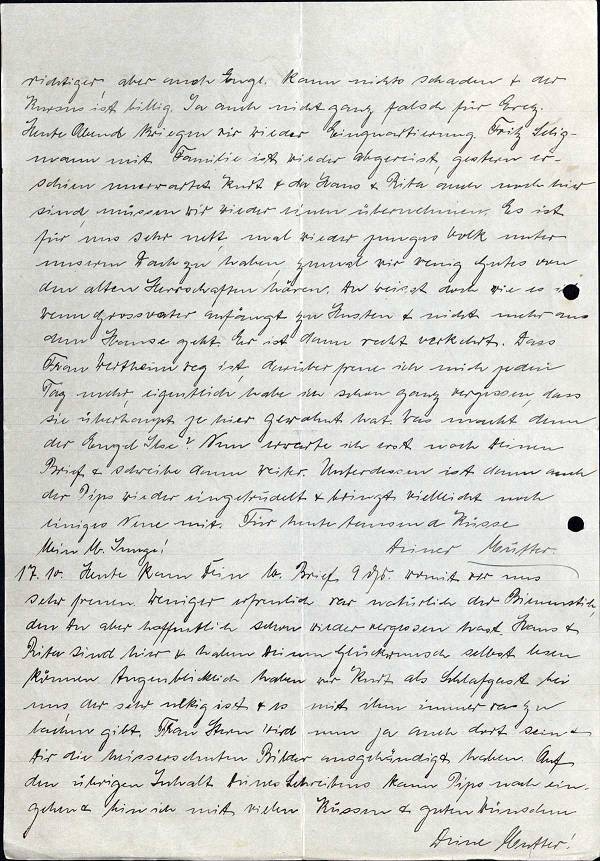 richtiger, aber auch Engl. kann nichts schaden & der
Kursus ist billig. Ja auch nicht ganz falsch für Erez.
Heute Abend kriegen wir wieder Einquartierung. Fritz Selig-
mann mit Familie ist wieder abgereist, gestern er-
schien unerwartet Kurt & da Hans & Rita auch noch hier
sind, müssen wir wieder einen übernehmen. Es ist
für uns sehr nett mal wieder junges Volk unter
unserem Dach zu haben, zumal wir wenig Gutes von
den alten Herrschaften hören. Du weisst doch wie es ist
wenn Grossvater anfängt zu Husten & nicht mehr aus
dem Hause geht. Er ist dann recht verkehrt. Dass
Frau Wertheim weg ist, darüber freue ich mich jeden
Tag mehr, eigentlich habe ich schon ganz vergessen, dass
sie überhaupt je hier gewohnt hat. Was macht denn
der Engel Ilse? Nun erwarte ich erst noch Deinen
Brief & schreibe dann weiter. Unterdessen ist dann auch
der Pips wieder eingetrudelt & bringt vielleicht noch
einiges Neue mit. Für heute tausend Küsse
Deiner Mutter.
Mein lb. Junge!
17.10. Heute kam Dein lb. Brief 9 ds. womit wir uns
sehr freuen. Weniger erfreulich war natürlich der Bienenstich,
den Du aber hoffentlich schon wieder vergessen hast. Hans &
Rita sind hier & haben Deinen Glückwunsch selbst lesen
können. Augenblicklich haben wir Kurt als Schlafgast bei
uns der sehr ulkig ist & es mit ihm immer was zu
lachen gibt. Frau Stern wird nun ja auch dort sein &
Dir die heissersehnten Bilder ausgehändigt haben. Auf
den übrigen Inhalt Deines Schreibens kann Pips noch ein-
gehen & bin ich mit vielen Küssen & guten Wünschen
Deine Mutter!